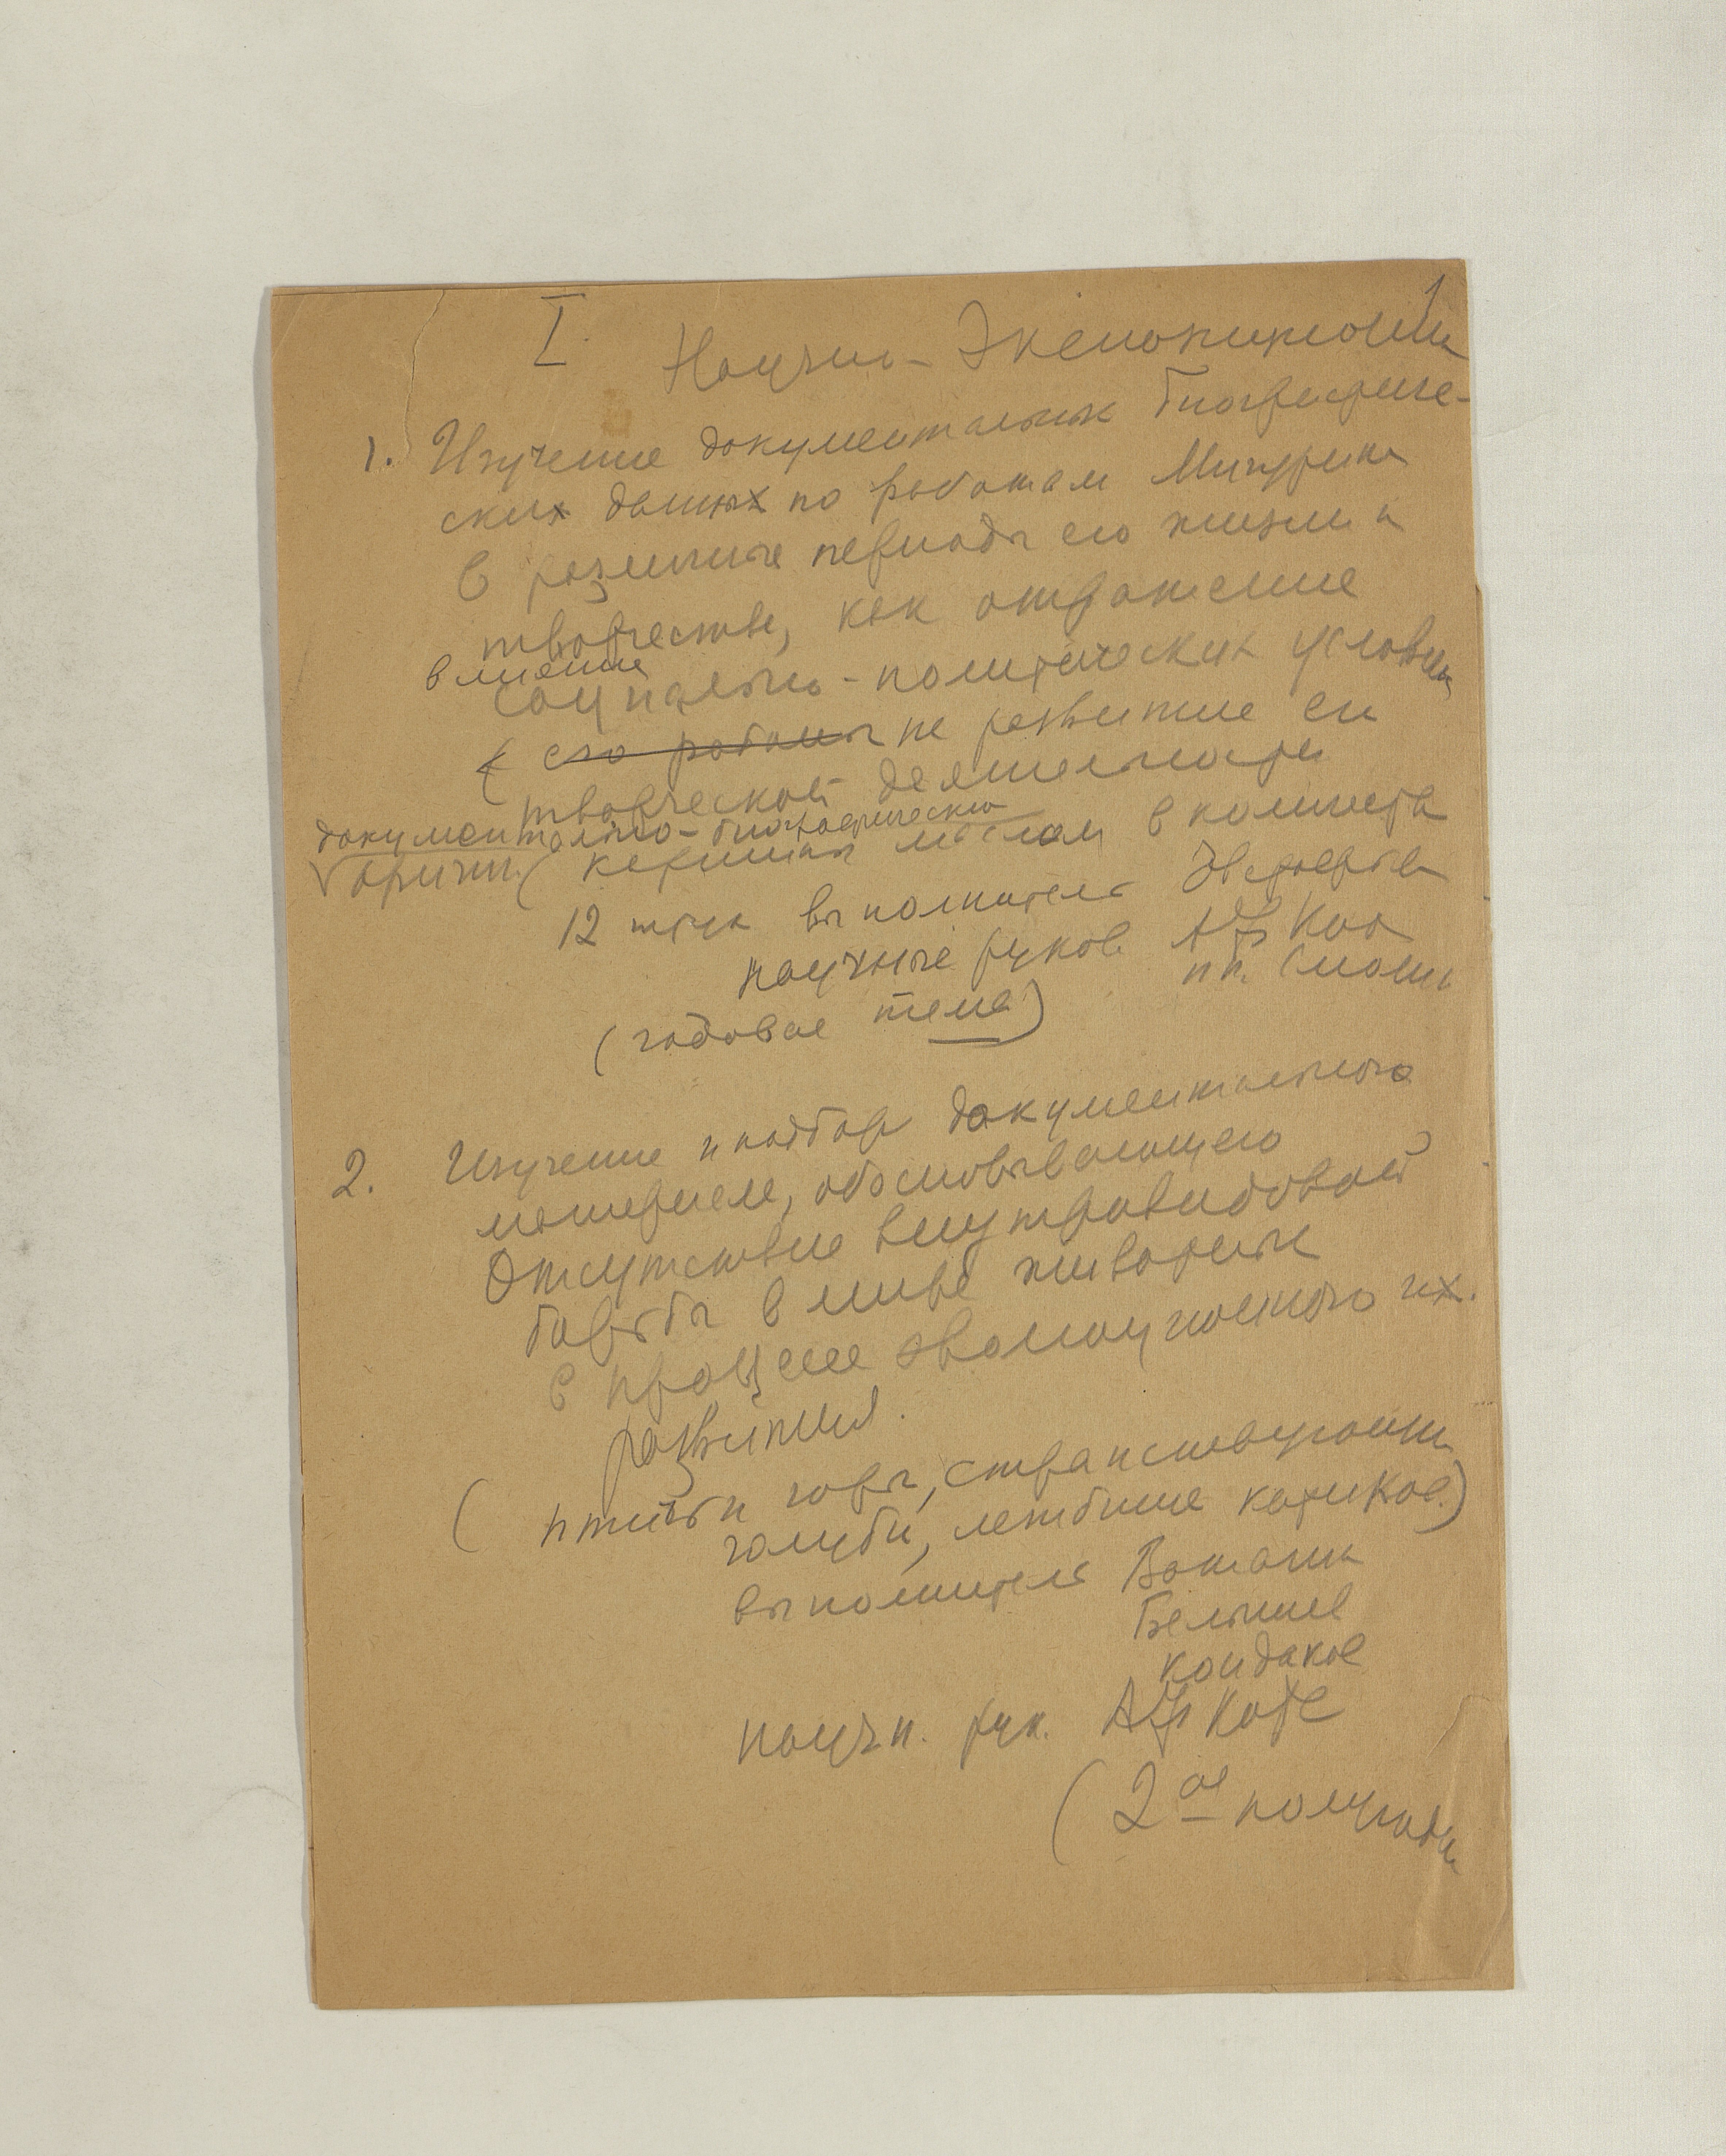 1
I. Научно-Экспозиционн
1. Изучение документальных биографиче-
ских данных по работам Мичурина
в различные периоды его жизни и
творчества, как отражение
влияние
социально-политических условий
его работы на развитие его
творческой деятельности
документально-биографические
оригин. (картины маслом в количеств
12 штук выполнитель
научные руков АФ Котс
(годовая тема)
2. Изучение и подбор документального
материала, обосновывающего
отсутствие внутривидовой
борьбы в мире животных
в процессе эволюционного их
развития.
(птичьи горы, странствующий
голубь, лежбище котиков)
выполнитель Ватагин
Белышев
Кондаков
научн. рук. АФ Котс
(2ое полугодие